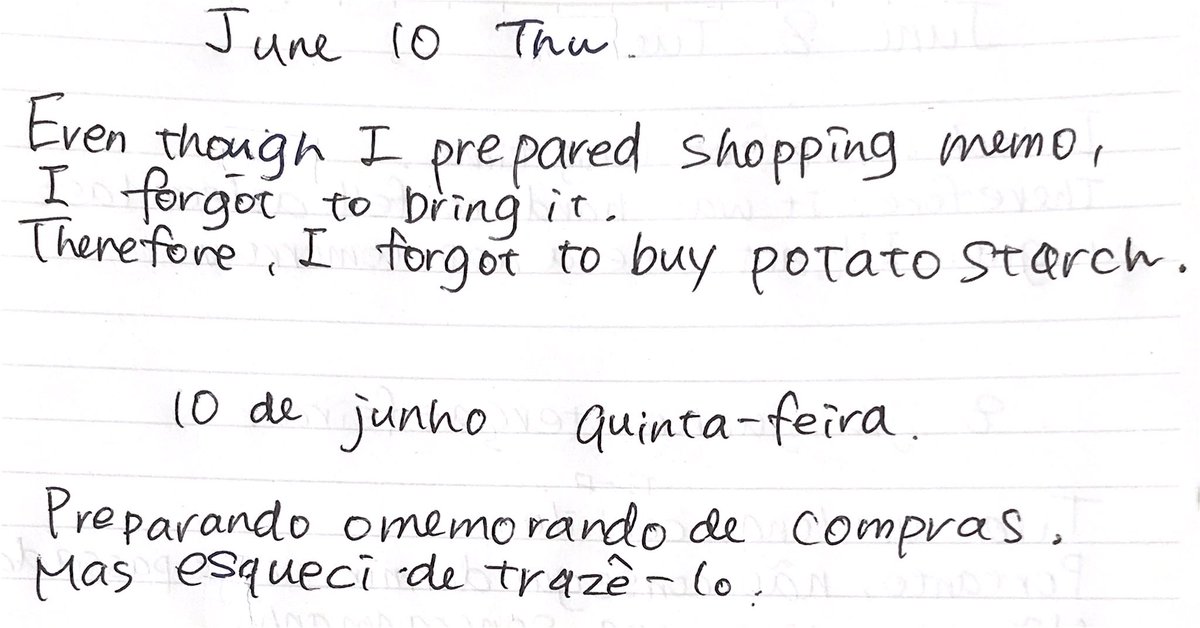 June 10 Thu.
Even though I prepared shopping memo,
I forgot to bring it.
Therefore, I forgot to buy potato starch.
10 de junho quinta-feira.
Preparando o memorando de compras.
Mas esqueci de trazê-lo.